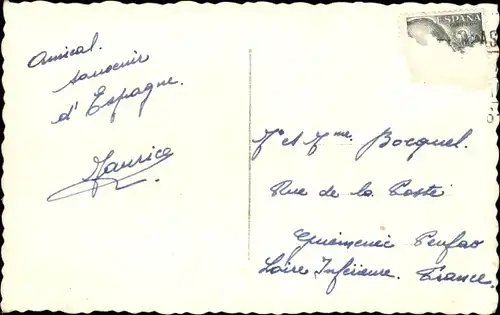 Amical.
souvenir
d'Espagne.
Maurice
ESPAÑA
M. et Mme. Bocquel.
Rue de la Poste
Guémenée Penfao
Loire Inférieure. France.